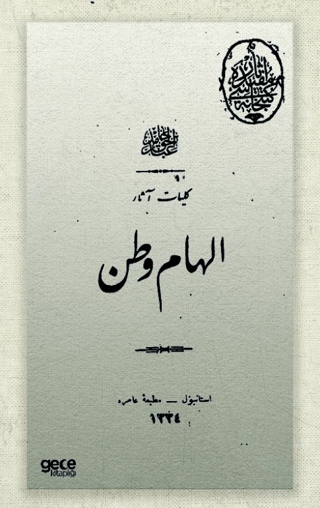 عبدالحق حامد
كليات آثار
الهام وطن
استانبول — مطبعهٔ عامره
١٣٣٤
gece
kitaplığı